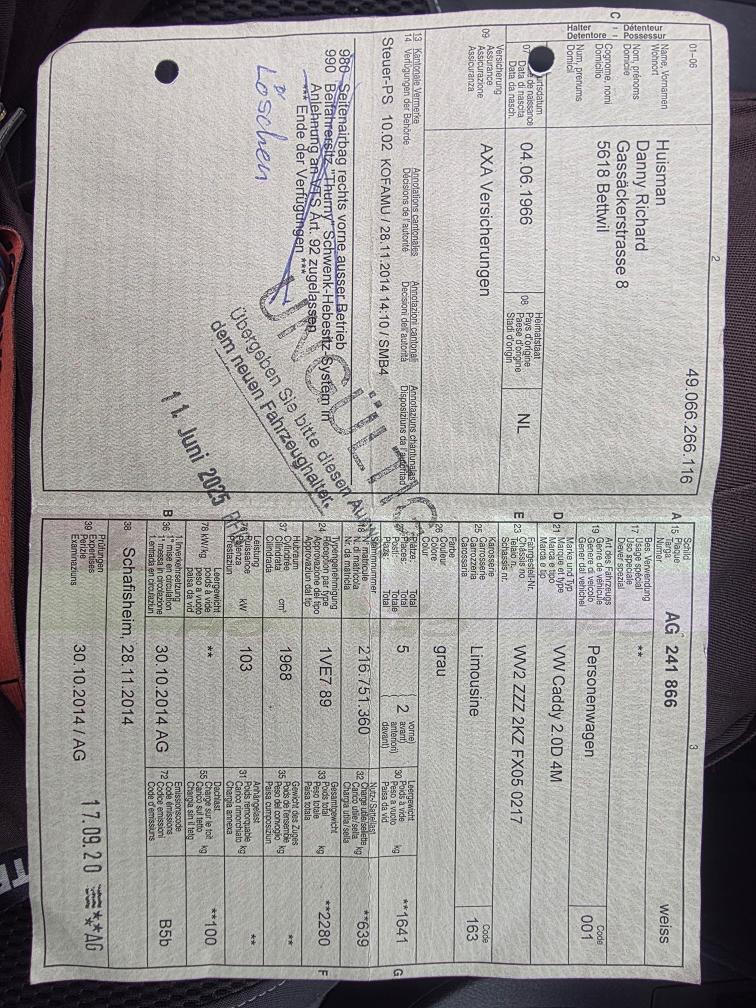 01-06
2
49.066.266.116
C
Halter
Detentore
Détenteur
Possessur
Name, Vornamen
Wohnort
Nom, prénoms
Domicile
Cognome, nomi
Domicilio
Num, prenums
Domicil
Huisman
Danny Richard
Gassäckerstrasse 8
5618 Bettwil
07
Data di nascita
Data da nasch.
04.06.1966
08
Heimatstaat
Pays d'origine
Paese d'origine
Stadi d'origin
NL
09
Versicherung
Assurance
Assicurazione
Assicuranza
AXA Versicherungen
13 Kantonale Vermerke
14 Verfügungen der Behörde
Annotations cantonales
Décisions de l'autorité
Annotazioni cantonali
Decisioni dell'autorità
Annotaziuns chantunalas
Disposiziuns da l'autoritad
Steuer-PS 10.02 KOFAMU / 28.11.2014 14:10 / SMB4
980 Seitenairbag rechts vorne ausser Betrieb
990 Beifahrersitz "Thurny" Schwenk-Hebesitz-System in
Anlehnung an VTS Art. 92 zugelassen
*** Ende der Verfügungen ***
Löschen
UNGÜLTIG
Übergeben Sie bitte diesen
dem neuen Fahrzeughalter.
11. Juni 2025
3
A
15
Schild
Plaque
Targa
Numer
AG 241 866
weiss
17
Bes. Verwendung
Usage spécial
Uso speciale
Diever spezial
**
19
Art des Fahrzeugs
Genre de véhicule
Genere di veicolo
Gener dal vehichel
Personenwagen
Code
001
D
21
Marke und Typ
Marque et type
Marca e tipo
Marca e tip
VW Caddy 2.0D 4M
E
23
Fahrgestell-Nr.
Châssis no
Telaio n.
Schassis nr.
WV2 ZZZ 2KZ FX05 0217
25
Karosserie
Carrosserie
Carrozzeria
Carossaria
Limousine
Code
163
26
Farbe
Couleur
Colore
Colur
grau
27
Plätze
Places
Posti
Plazs
Total
Total
Totale
Total
5
2
vorne)
avant)
anteriori)
davant)
30
Leergewicht
Poids à vide
Peso a vuoto
Paisa da vid
kg
**1641
G
18
Stammnummer
N° matricule
N. di matricola
Nr. da matricla
216.751.360
32
Nutz-/Sattellast
Charge utile/sellette
Carico utile/sella
Chargia utila/sella
kg
**639
24
Typengenehmigung
Réception par type
Approvazione del tipo
Approvaziun dal tip
1VE7 89
33
Gesamtgewicht
Poids total
Peso totale
Paisa totala
kg
**2280
F
37
Hubraum
Cylindrée
Cilindrata
Cilindrada
cm³
1968
35
Gewicht des Zuges
Poids de l'ensemble
Peso del convoglio
Paisa cumposiziun
kg
**
76
Leistung
Puissance
Potenza
Prestaziun
kW
103
31
Anhängelast
Poids remorquable
Carico rimorchiato
Chargia annexa
kg
**
78 kW/kg
Leergewicht
Poids à vide
peso a vuoto
paisa da vid
**
55
Dachlast
Charge sur le toit
Carico sul tetto
Chargia sin il tetg
kg
**100
B
36
1. Inverkehrsetzung
1re mise en circulation
1a messa in circolazione
1. entrada en circulaziun
30.10.2014 AG
72
Emissionscode
Code émissions
Codice emissioni
Code d'emissiuns
B5b
38
Schafisheim, 28.11.2014
39
Prüfungen
Expertises
Perizie
Examinaziuns
30.10.2014 / AG
17.09.20
AG